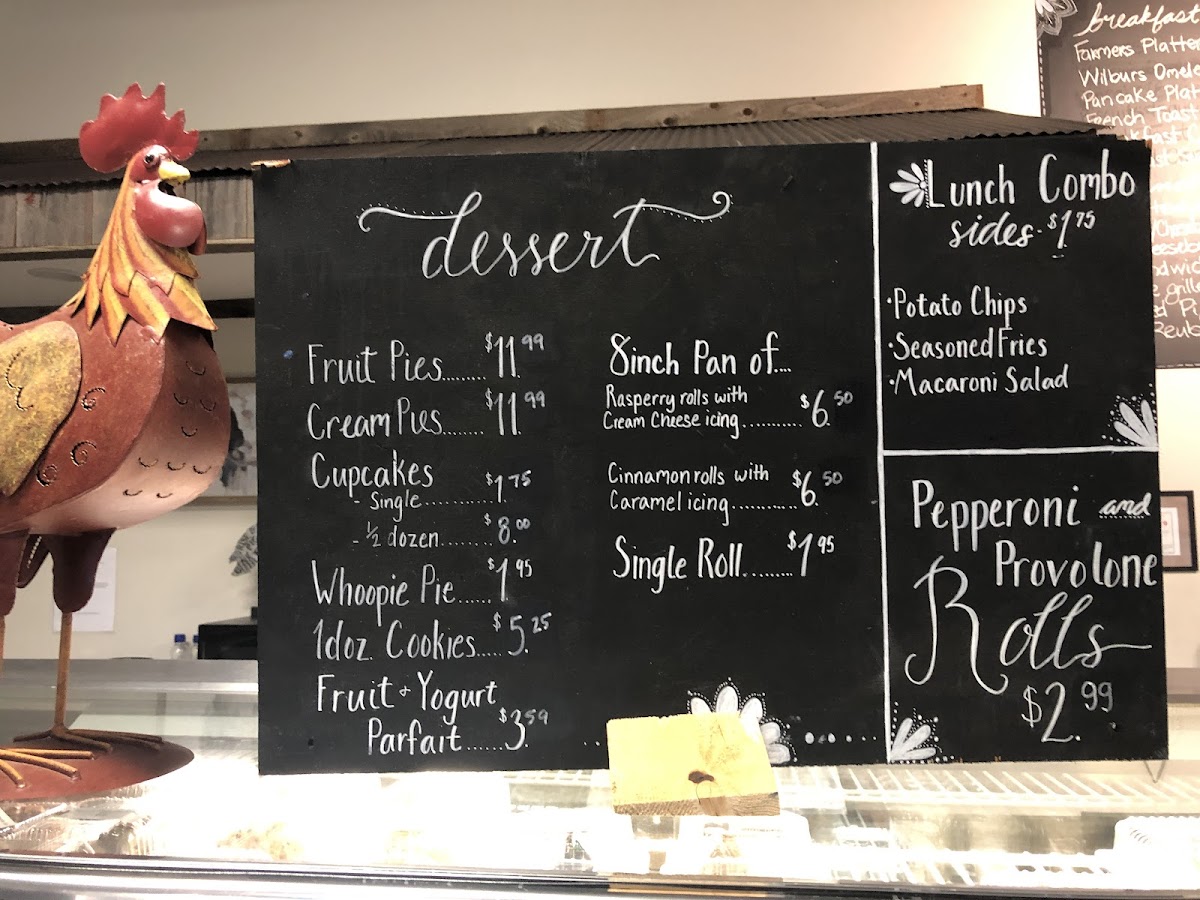 dessert
Fruit Pies........ $11.99
Cream Pies....... $11.99
Cupcakes
- Single........... $1.75
- 1/2 dozen........ $8.00
Whoopie Pie..... $1.95
1doz. Cookies..... $5.25
Fruit + Yogurt
Parfait...... $3.59
8inch Pan of....
Rasperry rolls with
Cream Cheese icing.......... $6.50
Cinnamon rolls with
Caramel icing............ $6.50
Single Roll......... $1.95
Lunch Combo
sides - $1.75
·Potato Chips
·Seasoned Fries
·Macaroni Salad
Pepperoni and
Provolone
Rolls
$2.99
breakfast
Farmers Platte
Wilburs Omele
Pancake Plat
French Toast